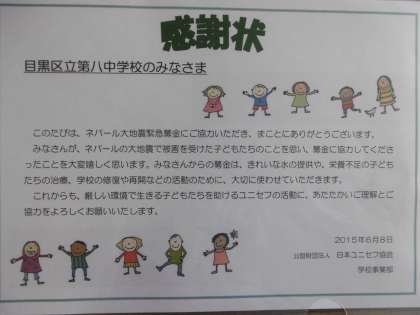 感謝状
目黒区立第八中学校のみなさま
このたびは、ネパール大地震緊急募金にご協力いただき、まことにありがとうございます。
みなさんが、ネパールの大地震で被害を受けた子どもたちのことを思い、募金に協力してくださ
ったことを大変嬉しく思います。みなさんからの募金は、きれいな水の提供や、栄養不足の子ども
たちの治療、学校の修復や再開などの活動のために、大切に使わせていただきます。
これからも、厳しい環境で生きる子どもたちを助けるユニセフの活動に、あたたかいご理解とご
協力をよろしくお願いいたします。
2015年6月8日
公益財団法人 日本ユニセフ協会
学校事業部